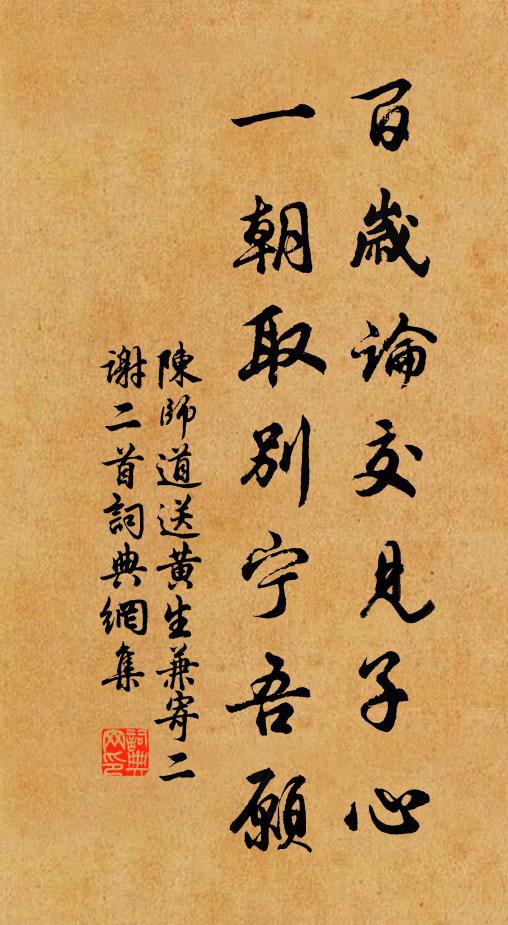 百歲論交見子心
一朝取別宁吾願
陳師道送黃生兼寄二
謝二首詞典網集
詞典網印